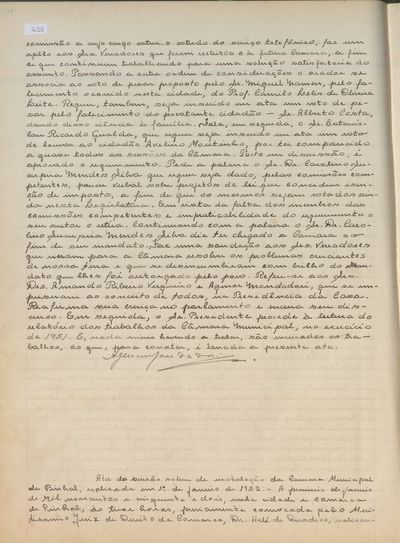 200
comissão a cujo cargo esteve o estudo do serviço telefônico, faz um
apêlo aos Srs. Vereadores que foram reeleitos e à futura Camara, a fim
de que continuem trabalhando para uma solução satisfatoria do
assunto. Passando a outra ordem de considerações o orador se
associa ao voto de pesar proposto pelo Sr. Miguel Nomen, pelo fa-
lecimento ocorrido nesta cidade, do Prof. Camilo Lelis de Oliveira
Leite. Requer, tambem, seja inserido em ata um voto de pe-
sar pelo falecimento do prestante cidadão - Sr. Alberto Costa,
dando disso ciência à familia. Fala, em seguida, o Sr. Estanis-
lau Ricardo Gualda, que requer seja inserido em ata um voto
de louvor ao cidadão Avelino Moutinho, por ter comparecido
a quase todas as sessões da Câmara. Posto em discussão, é
aprovado o requerimento. Pede a palavra o Sr. Dr. Carolino Ju-
cupira Mendes Silva que requer seja dado, pelas comissões com-
petentes, parecer verbal sobre projetos de lei que concedem isen-
ção de imposto, a fim de que os mesmos sejam votados ain-
da nesta Legislatura. Em vista da falta dos membros das
comissões competentes e impraticabilidade do requerimento o
seu autor o retira. Continuando com a palavra o Sr. Dr. Caro-
lino Jucupira Mendes Silva diz ter chegado a Camara ao
fim de seu mandato. Faz uma saudação aos Srs. Vereadores
que vieram para a Câmara resolver os problemas cruciantes
de nossa terra e que se desincumbiram com brilho do man-
dato que lhes foi outorgado pelo povo. Refere-se aos Srs.
Drs. Armando Ribeiro Vergueiro e Agenor Mondadori, que se im-
puseram ao conceito de todos, na Presidência da Casa.
Reafirma sua crença no parlamento e encerra seu dis-
curso. Em seguida, o Sr. Presidente procede à leitura do
relatório dos trabalhos da Câmara Municipal, no exercício
de 1951. E, nada mais havendo a tratar, são encerrados os tra-
balhos, do que, para constar, é lavrada a presente ata.
Ata da sessão solene de instalação da Camara Municipal
de Pinhal, realizada em 1º de janeiro de 1952. - A primeiro de janeiro
de Mil novecentos e cinquenta e dois, nesta cidade e comarca
de Pinhal, às treze horas, previamente convocada pelo Meri-
tissimo Juiz de Direito da Comarca, Dr. Hell de Quadros,